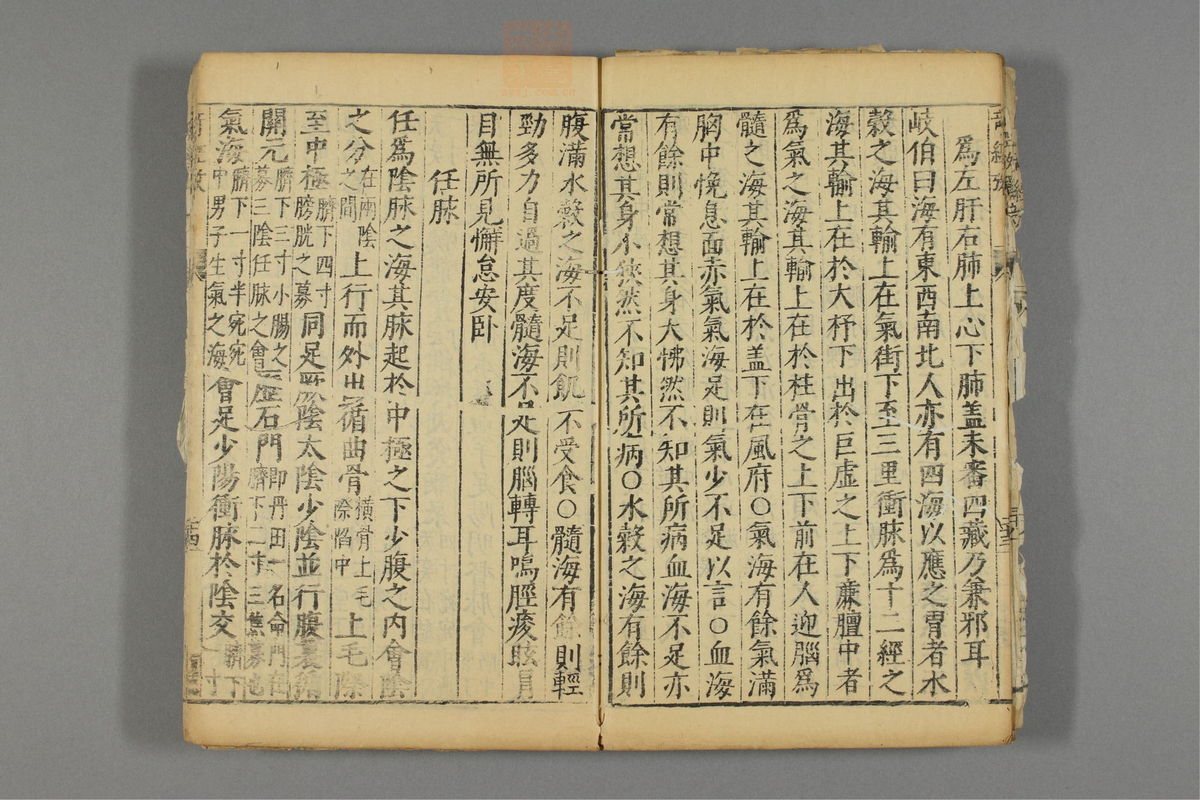 爲左肝右肺上心下肺盖未審四藏乃兼邪耳
岐伯曰海有東西南北人亦有四海以應之胃者水
穀之海其輸上在氣街下至三里衝脉爲十二經之
海其輸上在於大杼下出於巨虛之上下廉膻中者
爲氣之海其輸上在於柱骨之上下前在人迎腦爲
髓之海其輸上在於盖下在風府○氣海有餘氣滿
胸中悗息面赤氣氣海足則氣少不足以言○血海
有餘則常想其身大怫然不知其所病血海不足亦
常想其身小狹然不知其所病○水穀之海有餘則
腹滿水穀之海不足則飢不受食○髓海有餘則輕
勁多力自過其度髓海不足則腦轉耳鳴脛痠眩冐
目無所見懈怠安卧
任脉
任爲陰脉之海其脉起於中極之下少腹之内會陰
之分在兩陰之間上行而外出循曲骨橫骨上毛際陷中上毛際
至中極臍下四寸膀胱之募同足厥陰太陰少陰並行腹裏循
關元臍下三寸小腸之募三陰任脉之會歷石門即丹田一名命門在臍下二寸三焦募也
氣海臍下一寸半宛宛中男子生氣之海會足少陽衝脉於陰交臍下一寸